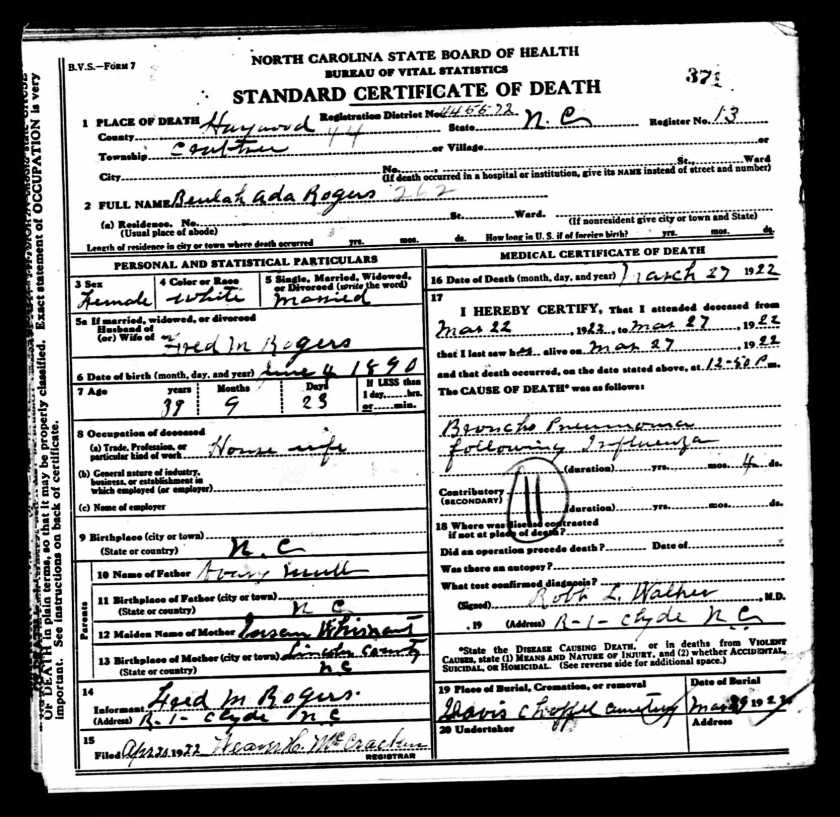 B.V.S.—FORM 7
NORTH CAROLINA STATE BOARD OF HEALTH
BUREAU OF VITAL STATISTICS
STANDARD CERTIFICATE OF DEATH
371
1 PLACE OF DEATH Registration District No.
County Haywood 44 State N. C Register No. 13
Township or Village or
City No. St., Ward
(If death occurred in a hospital or institution, give its NAME instead of street and number)
2 FULL NAME Beulah Ada Rogers 262
(a) Residence. No. St. Ward.
(Usual place of abode) (If nonresident give city or town and State)
Length of residence in city or town where death occurred yrs. mos. ds. How long in U. S. if of foreign birth? yrs. mos. ds.
PERSONAL AND STATISTICAL PARTICULARS
3 Sex 4 Color or Race 5 Single, Married, Widowed, or Divorced (write the word)
Female White Married
5a If married, widowed, or divorced
Husband of
(or) Wife of Fred M Rogers
6 Date of birth (month, day, and year) June 4 1890
7 Age years Months Days If LESS than
1 day......hrs.
or......min.
39 9 23
8 Occupation of deceased
(a) Trade, Profession, or
particular kind of work House wife
(b) General nature of industry,
business, or establishment in
which employed (or employer)
(c) Name of employer
9 Birthplace (city or town)
(State or country) N. C
Parents
10 Name of Father
11 Birthplace of Father (city or town)
(State or country) N C
12 Maiden Name of Mother
13 Birthplace of Mother (city or town) Lincoln County
(State or country) N C
14
Informant Fred M Rogers.
(Address) R-1- Clyde N C
15
Filed 1922 Weaver H. McCracken
REGISTRAR
MEDICAL CERTIFICATE OF DEATH
16 Date of Death (month, day, and year) March 27 1922
17
I HEREBY CERTIFY, That I attended deceased from
Mar 22, 1922, to Mar 27, 1922
that I last saw her alive on Mar 27, 1922
and that death occurred, on the date stated above, at 12-50 P m.
The CAUSE OF DEATH* was as follows:
Broncho Pneumonia
following Influenza
(duration) yrs. mos. 4 ds.
Contributory
(SECONDARY)
11
(duration) yrs. mos. ds.
18 Where was disease contracted
if not at place of death?
Did an operation precede death? Date of
Was there an autopsy?
What test confirmed diagnosis?
(Signed) Robt L. Walker, M.D.
, 19 (Address) R-1- Clyde N. C.
*State the DISEASE CAUSING DEATH, or in deaths from VIOLENT
CAUSES, state (1) MEANS AND NATURE OF INJURY, and (2) whether ACCIDENTAL,
SUICIDAL, or HOMICIDAL. (See reverse side for additional space.)
19 Place of Burial, Cremation, or removal Date of Burial
Davis Chappel cemetery Mar 29 192
20 Undertaker Address
OF DEATH in plain terms, so that it may be properly classified. Exact statement of OCCUPATION is very
important. See instructions on back of certificate.